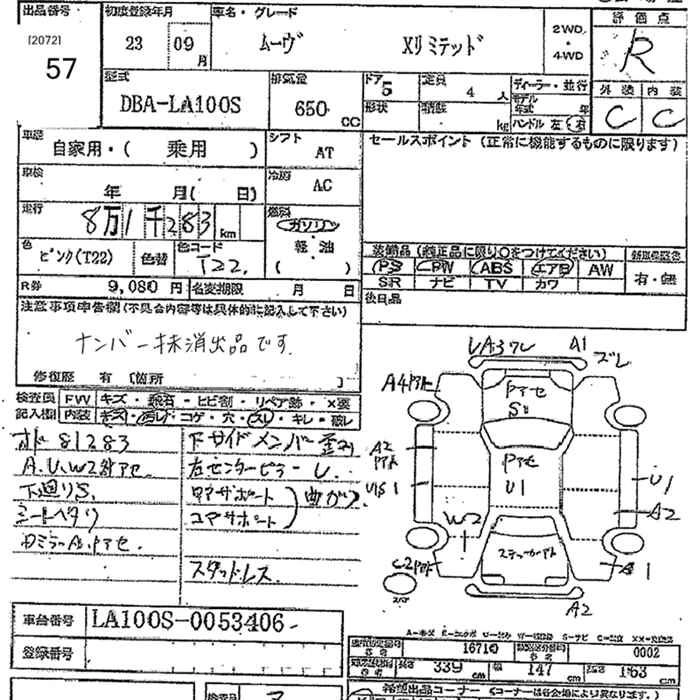 出品番号 初度登録年月 車名・グレード 評価点
[2072]
57
23 09月 ムーヴ Xリミテッド 2WD・4WD R
型式 排気量 ドア 定員 ディーラー・並行 外装 内装
DBA-LA100S 650 CC 5 4人 C C
形状 積載 kg モデル年式 年
ハンドル 左・右
車歴 シフト セールスポイント (正常に機能するものに限ります)
自家用・( 乗用 ) AT
車検 年 月( 日) 冷房 AC
走行 8万1千283 km 燃料 ガソリン・軽油
( )
色 ピンク(T22) 色替 色コード T22.
装備品 (純正品に限り○をつけてください)
PS PW ABS エアB AW 有・無
SR ナビ TV カワ
R券 9,080円 名変期限 月 日 後日品
注意事項申告欄 (不具合内容等は具体的に記入して下さい)
ナンバー抹消出品です.
修復歴 有 [箇所 ]
検査員記入欄 FW キズ・飛石・ヒビ割・リペア跡・X要
内装 キズ・汚レ・コゲ・穴・スレ・キレ・破レ
オド81283
A.U.W2針アセ.
下廻りS.
シートヘタリ
Dミラー A1.アセ.
下サイドメンバー歪み
左センターピラーU.
ロアサポート
コアサポート
曲がり
スタッドレス
A1 ズレ
A4アト
アセ
S1
A2
アト
アセ
U1
U1S1
U1
A2
W2
ステッカーアト
C2アト
A1
A2
車台番号 LA100S-0053406
登録番号
16710 0002
長さ 339 cm 幅 147 cm 高さ 163 cm
検査員